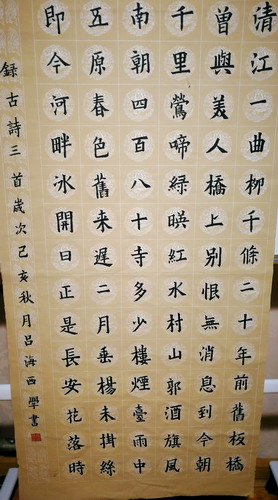 清江一曲柳千條二十年前舊板橋
曾與美人橋上別恨無消息到今朝
千里鶯啼綠暎紅水村山郭酒旗風
南朝四百八十寺多少樓煙臺雨中
五原春色舊来遲二月垂楊未掛絲
即今河畔冰開日正是長安花落時
録古詩三首歲次己亥秋月吕海西學書